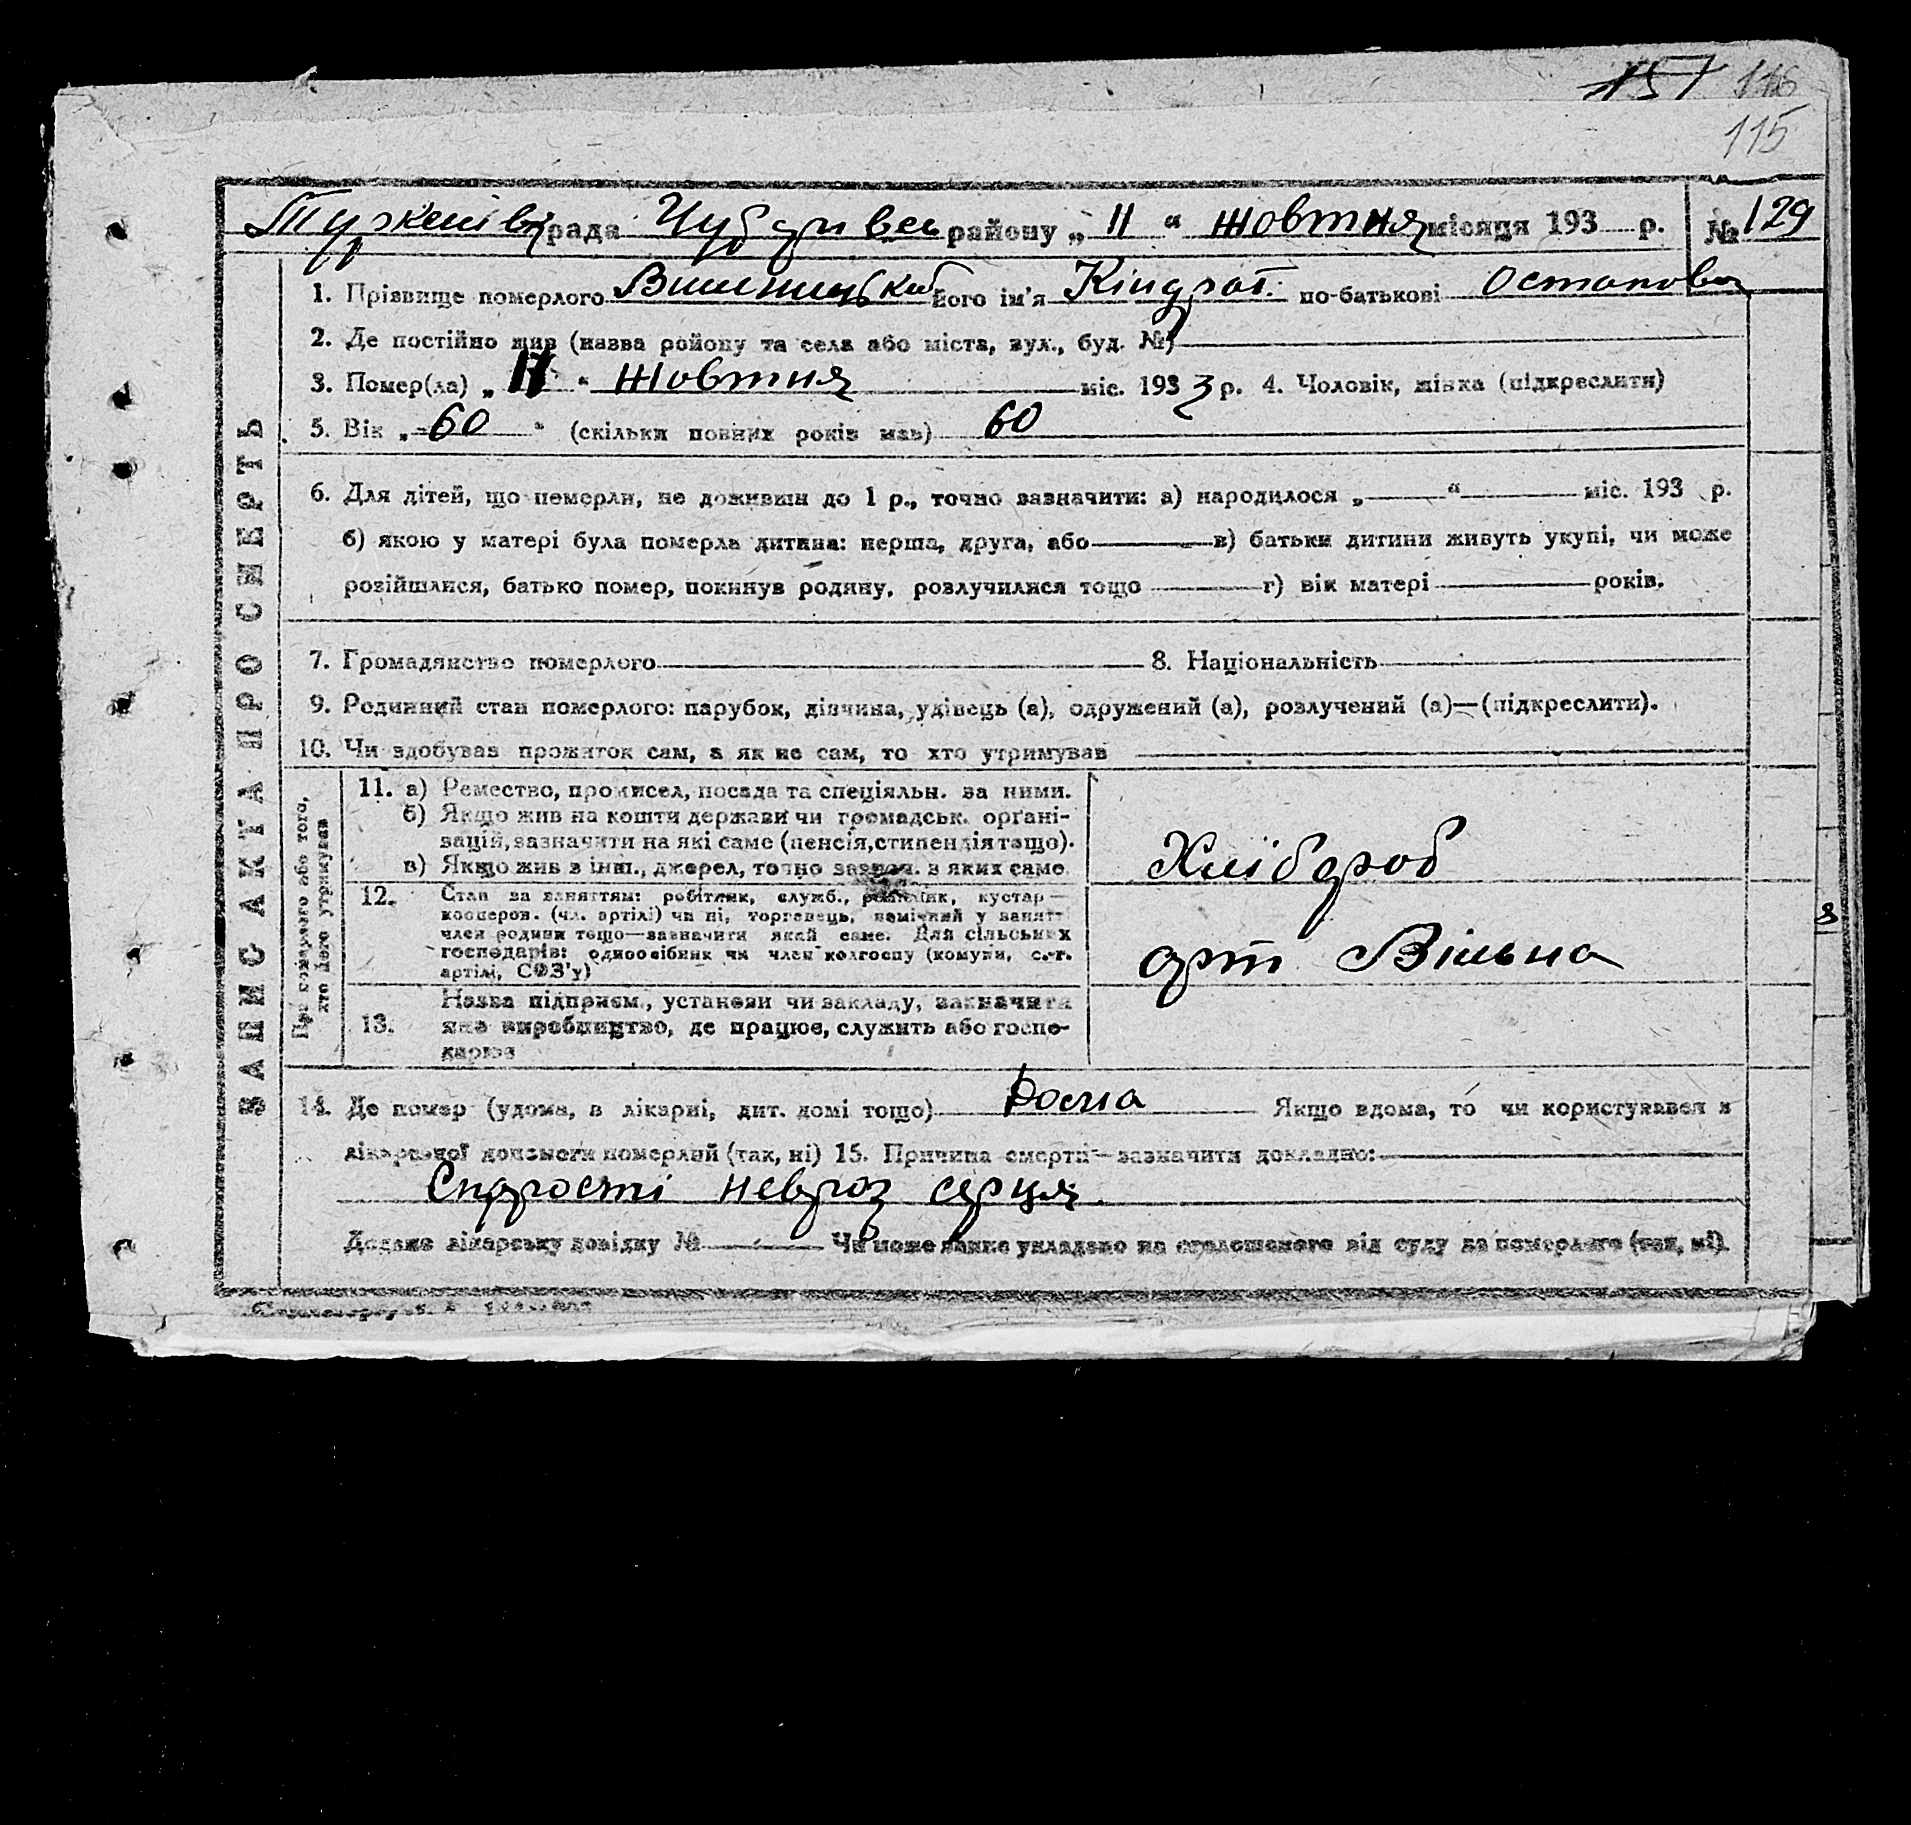 151 116
115
рада Чубарівськ району „ 11 “ жовтня місяця 193 р. № 129
ЗАПИС АКТА ПРО СМЕРТЬ
1. Прізвище померлого його ім'я Кіндрат. по-батькові Остапови
2. Де постійно жив (назва району та села або міста, вул., буд. №)
3. Помер(ла) „ 11 “ жовтня міс. 193 3 р. 4. Чоловік, жінка (підкреслити)
5. Вік „ 60 “ (скільки повних років мав) 60
6. Для дітей, що померли, не доживши до 1 р., точно зазначити: а) народилося „ “ міс. 193 р.
б) якою у матері була померла дитина: перша, друга, або в) батьки дитини живуть укупі, чи може
розійшлися, батько помер, покинув родину, розлучилися тощо г) вік матері років.
7. Громадянство померлого 8. Національність
9. Родинний стан померлого: парубок, дівчина, удівець (а), одружений (а), розлучений (а)—(підкреслити).
10. Чи здобував прожиток сам, а як не сам, то хто утримував
Про померлого або того,
хто його утримував
11. а) Ремество, промисел, посада та спеціяльн. за ними.
б) Якщо жив на кошти держави чи громадськ. орґані-
зацій, зазначити на які саме (пенсія, стипендія тощо).
в) Якщо жив з інш., джерел, точно зазнач. з яких саме
Хлібороб
12. Стан за заняттям: робітник, служб., кустар—
кооперов. (чл. артілі) чи ні, торговець, помічний у занятт
член родини тощо—зазначити який саме. Для сільських
господарів: одноосібник чи член колгоспу (комуни, с.-г.
артілі, СОЗ'у)
арт Вільна
13. Назва підприєм., установи чи закладу, зазначити
яке виробництво, де працює, служить або госпо-
дарює
14. Де помер (удома, в лікарні, дит. домі тощо) Дома Якщо вдома, то чи користувався з
лікарської допомоги померлий (так, ні) 15. Причина смерти—зазначити докладно:
Старості невроз серця.
Додано лікарську довідку № Чи може запис укладено на оголошеного від суду за померлого (так, ні).